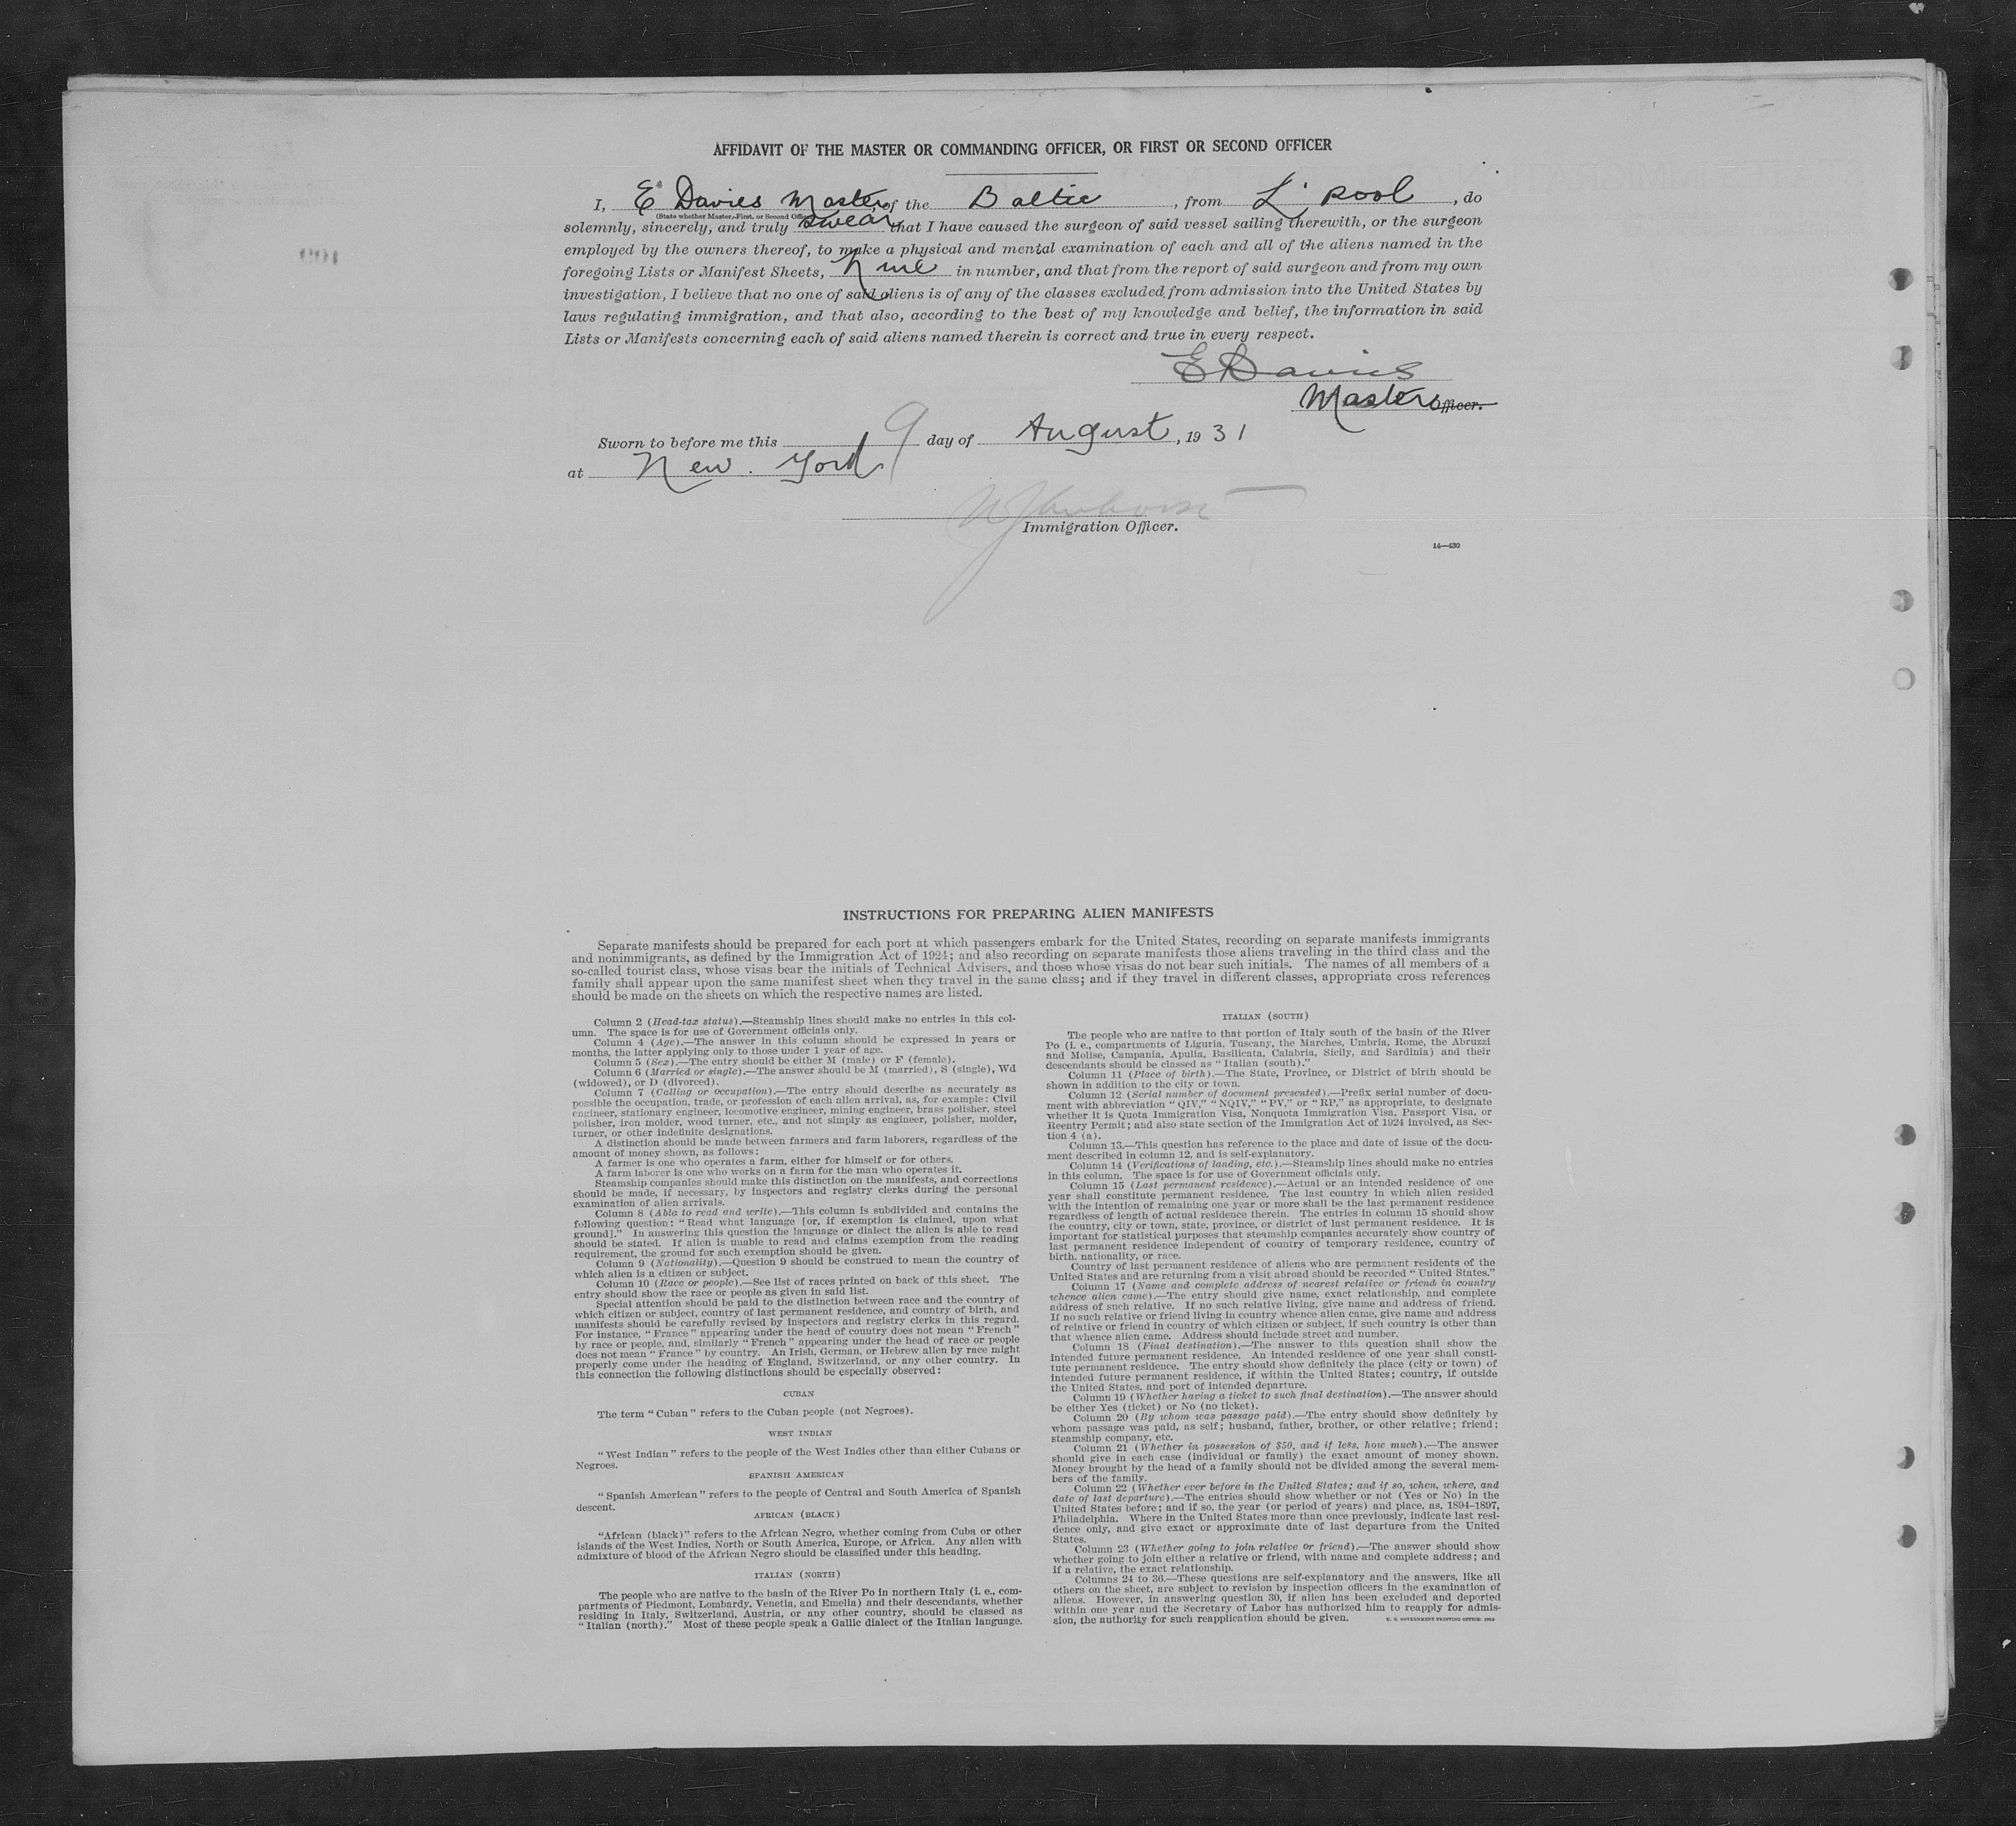 AFFIDAVIT OF THE MASTER OR COMMANDING OFFICER, OR FIRST OR SECOND OFFICER
I, E Davies Master of the Baltic, from L'pool, do
(State whether Master, First, or Second Officer)
solemnly, sincerely, and truly swear that I have caused the surgeon of said vessel sailing therewith, or the surgeon
employed by the owners thereof, to make a physical and mental examination of each and all of the aliens named in the
foregoing Lists or Manifest Sheets, Nine in number, and that from the report of said surgeon and from my own
investigation, I believe that no one of said aliens is of any of the classes excluded from admission into the United States by
laws regulating immigration, and that also, according to the best of my knowledge and belief, the information in said
Lists or Manifests concerning each of said aliens named therein is correct and true in every respect.
E Davies
Master Officer.
Sworn to before me this 9 day of August, 1931
at New York
Immigration Officer.
14—430
INSTRUCTIONS FOR PREPARING ALIEN MANIFESTS
Separate manifests should be prepared for each port at which passengers embark for the United States, recording on separate manifests immigrants
and nonimmigrants, as defined by the Immigration Act of 1924; and also recording on separate manifests those aliens traveling in the third class and the
so-called tourist class, whose visas bear the initials of Technical Advisers, and those whose visas do not bear such initials. The names of all members of a
family shall appear upon the same manifest sheet when they travel in the same class; and if they travel in different classes, appropriate cross references
should be made on the sheets on which the respective names are listed.
Column 2 (Head-tax status).—Steamship lines should make no entries in this col-
umn. The space is for use of Government officials only.
Column 4 (Age).—The answer in this column should be expressed in years or
months, the latter applying only to those under 1 year of age.
Column 5 (Sex).—The entry should be either M (male) or F (female).
Column 6 (Married or single).—The answer should be M (married), S (single), Wd
(widowed), or D (divorced).
Column 7 (Calling or occupation).—The entry should describe as accurately as
possible the occupation, trade, or profession of each alien arrival, as, for example: Civil
engineer, stationary engineer, locomotive engineer, mining engineer, brass polisher, steel
polisher, iron molder, wood turner, etc., and not simply as engineer, polisher, molder,
turner, or other indefinite designations.
A distinction should be made between farmers and farm laborers, regardless of the
amount of money shown, as follows:
A farmer is one who operates a farm, either for himself or for others.
A farm laborer is one who works on a farm for the man who operates it.
Steamship companies should make this distinction on the manifests, and corrections
should be made, if necessary, by inspectors and registry clerks during the personal
examination of alien arrivals.
Column 8 (Able to read and write).—This column is subdivided and contains the
following question: "Read what language [or, if exemption is claimed, upon what
ground]." In answering this question the language or dialect the alien is able to read
should be stated. If alien is unable to read and claims exemption from the reading
requirement, the ground for such exemption should be given.
Column 9 (Nationality).—Question 9 should be construed to mean the country of
which alien is a citizen or subject.
Column 10 (Race or people).—See list of races printed on back of this sheet. The
entry should show the race or people as given in said list.
Special attention should be paid to the distinction between race and the country of
which citizen or subject, country of last permanent residence, and country of birth, and
manifests should be carefully revised by inspectors and registry clerks in this regard.
For instance, "France" appearing under the head of country does not mean "French"
by race or people, and, similarly "French" appearing under the head of race or people
does not mean "France" by country. An Irish, German, or Hebrew alien by race might
properly come under the heading of England, Switzerland, or any other country. In
this connection the following distinctions should be especially observed:
CUBAN
The term "Cuban" refers to the Cuban people (not Negroes).
WEST INDIAN
"West Indian" refers to the people of the West Indies other than either Cubans or
Negroes.
SPANISH AMERICAN
"Spanish American" refers to the people of Central and South America of Spanish
descent.
AFRICAN (BLACK)
"African (black)" refers to the African Negro, whether coming from Cuba or other
islands of the West Indies, North or South America, Europe, or Africa. Any alien with
admixture of blood of the African Negro should be classified under this heading.
ITALIAN (NORTH)
The people who are native to the basin of the River Po in northern Italy (i. e., com-
partments of Piedmont, Lombardy, Venetia, and Emelia) and their descendants, whether
residing in Italy, Switzerland, Austria, or any other country, should be classed as
"Italian (north)." Most of these people speak a Gallic dialect of the Italian language.
ITALIAN (SOUTH)
The people who are native to that portion of Italy south of the basin of the River
Po (i. e., compartments of Liguria, Tuscany, the Marches, Umbria, Rome, the Abruzzi
and Molise, Campania, Apulia, Basilicata, Calabria, Sicily, and Sardinia) and their
descendants should be classed as "Italian (south)."
Column 11 (Place of birth).—The State, Province, or District of birth should be
shown in addition to the city or town.
Column 12 (Serial number of document presented).—Prefix serial number of docu-
ment with abbreviation "QIV," "NQIV," "PV," or "RP," as appropriate, to designate
whether it is Quota Immigration Visa, Nonquota Immigration Visa, Passport Visa, or
Reentry Permit; and also state section of the Immigration Act of 1924 involved, as Sec-
tion 4 (a).
Column 13.—This question has reference to the place and date of issue of the docu-
ment described in column 12, and is self-explanatory.
Column 14 (Verifications of landing, etc.).—Steamship lines should make no entries
in this column. The space is for use of Government officials only.
Column 15 (Last permanent residence).—Actual or an intended residence of one
year shall constitute permanent residence. The last country in which alien resided
with the intention of remaining one year or more shall be the last permanent residence
regardless of length of actual residence therein. The entries in column 15 should show
the country, city or town, state, province, or district of last permanent residence. It is
important for statistical purposes that steamship companies accurately show country of
last permanent residence independent of country of temporary residence, country of
birth, nationality, or race.
Country of last permanent residence of aliens who are permanent residents of the
United States and are returning from a visit abroad should be recorded "United States."
Column 17 (Name and complete address of nearest relative or friend in country
whence alien came).—The entry should give name, exact relationship, and complete
address of such relative. If no such relative living, give name and address of friend.
If no such relative or friend living in country whence alien came, give name and address
of relative or friend in country of which citizen or subject, if such country is other than
that whence alien came. Address should include street and number.
Column 18 (Final destination).—The answer to this question shall show the
intended future permanent residence. An intended residence of one year shall consti-
tute permanent residence. The entry should show definitely the place (city or town) of
intended future permanent residence, if within the United States; country, if outside
the United States, and port of intended departure.
Column 19 (Whether having a ticket to such final destination).—The answer should
be either Yes (ticket) or No (no ticket).
Column 20 (By whom was passage paid).—The entry should show definitely by
whom passage was paid, as self; husband, father, brother, or other relative; friend;
steamship company, etc.
Column 21 (Whether in possession of $50, and if less, how much).—The answer
should give in each case (individual or family) the exact amount of money shown.
Money brought by the head of a family should not be divided among the several mem-
bers of the family.
Column 22 (Whether ever before in the United States; and if so, when, where, and
date of last departure).—The entries should show whether or not (Yes or No) in the
United States before; and if so, the year (or period of years) and place, as, 1894–1897,
Philadelphia. Where in the United States more than once previously, indicate last resi-
dence only, and give exact or approximate date of last departure from the United
States.
Column 23 (Whether going to join relative or friend).—The answer should show
whether going to join either a relative or friend, with name and complete address; and
if a relative, the exact relationship.
Columns 24 to 36.—These questions are self-explanatory and the answers, like all
others on the sheet, are subject to revision by inspection officers in the examination of
aliens. However, in answering question 30, if alien has been excluded and deported
within one year and the Secretary of Labor has authorized him to reapply for admis-
sion, the authority for such reapplication should be given.
U. S. GOVERNMENT PRINTING OFFICE: